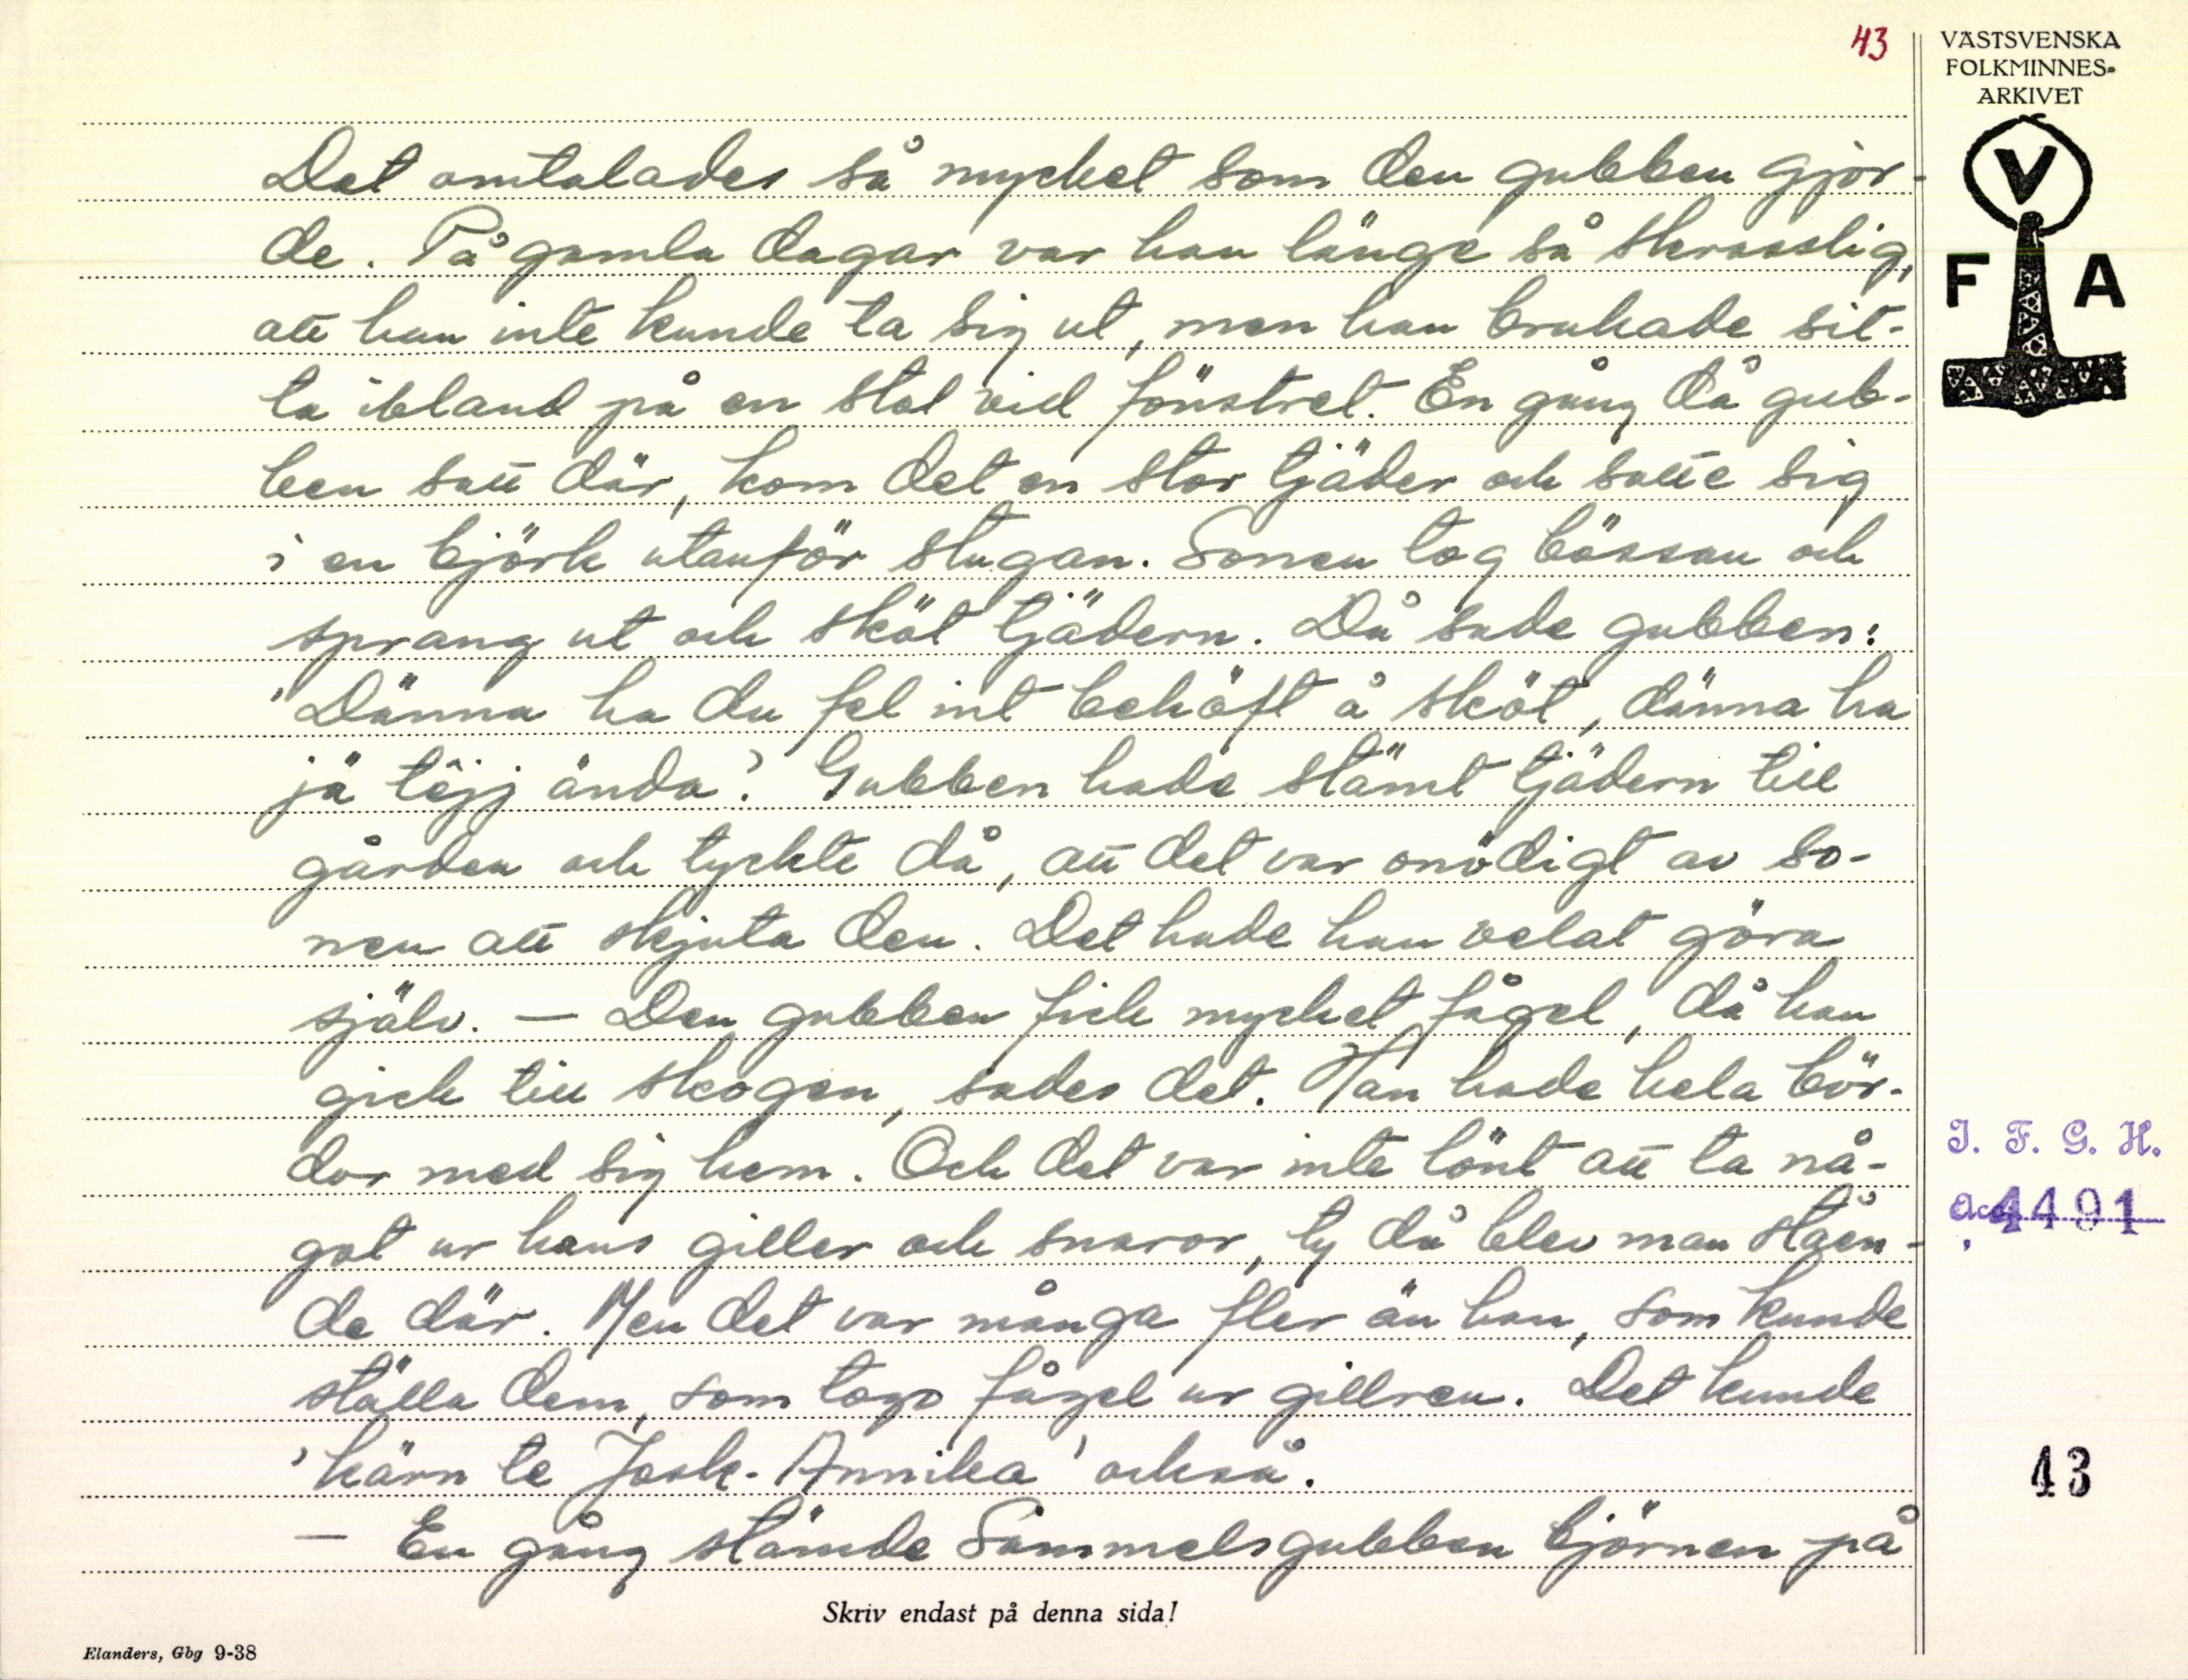 43
VÄSTSVENSKA
FOLKMINNES-
ARKIVET
V
F A
Det omtalades så mycket som den gubben gjor-
de. På gamla dagar var han länge så skrasslig,
att han inte kunde ta sig ut, men han brukade sit-
ta ibland på en stol vid fönstret. En gång då gub-
ben satt där, kom det en stor tjäder och satte sig
i en björk utanför stugan. Sonen tog bössan och
sprang ut och sköt tjädern. Då sade gubben:
"Dänna ha du fel int behöft å sköt, dänna ha
jä têjj ända". Gubben hade stämt tjädern till
gården och tyckte då, att det var onödigt av so-
nen att skjuta den. Det hade han velat göra
själv. — Den gubben fick mycket fågel, då han
gick till skogen, sades det. Han hade hela bör-
dor med sig hem. Och det var inte lönt att ta nå-
got ur hans giller och snaror, ty då blev man ståen-
de där. Men det var många fler än han, som kunde
ställa dem, som togo fågel ur gillren. Det kunde
'kärn te Jask-Annika' också.
— En gång stämde Sammelsgubben björnen på
I. F. G. H.
Acc. 4491
43
Skriv endast på denna sida!
Elanders, Gbg 9-38